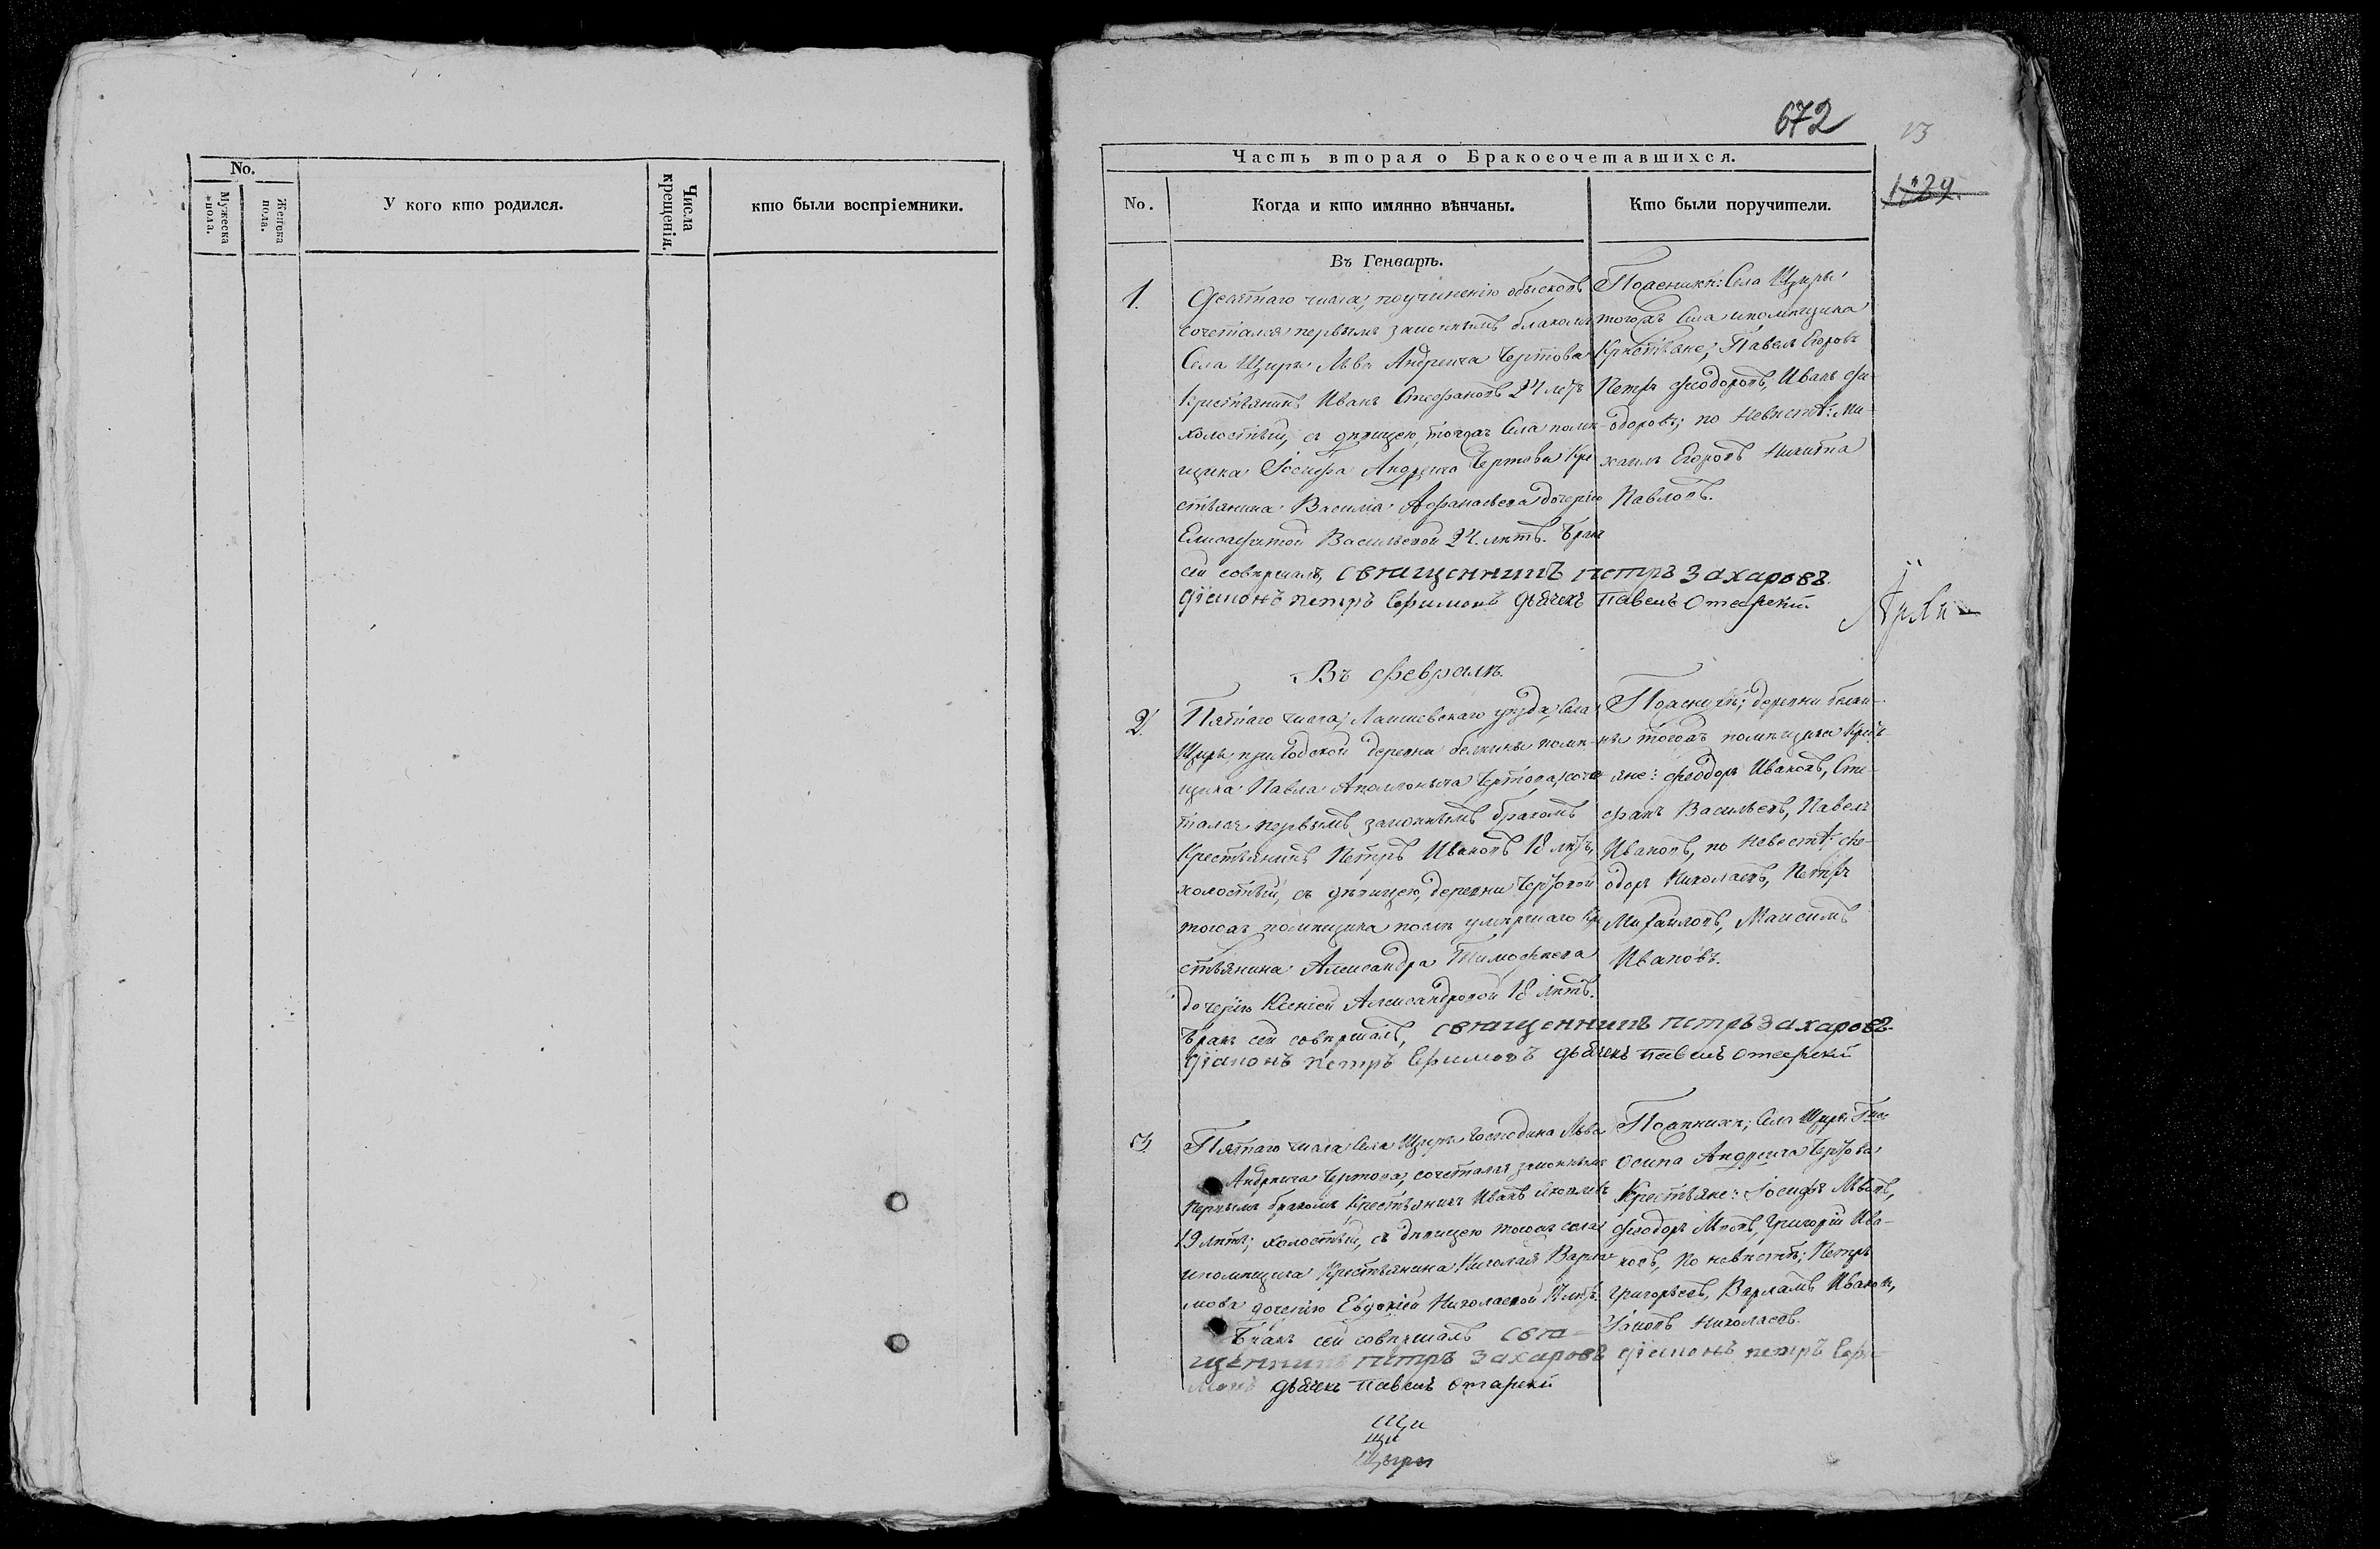 No.
Мужеска пола.
Женска пола.
У кого кто родился.
Числа крещенія.
кто были воспріемники.
672
13
1829.
Часть вторая о Бракосочетавшихся.
No.
Когда и кто имянно вѣнчаны.
Кто были поручители.
Въ Генварѣ.
1.
Десятаго числа, поучиненію обысковъ
сочетался первымъ законнымъ бракомъ
Села Щиръ Льва Андреича Чертова
Крестьянинъ Иванъ Стефановъ 24 лѣтъ
холостый, съ дѣвицею, тогожъ Села помѣ-
щика Іосифа Андреича Чертова Кре
стьянина Василіа Афанасьева дочерію
Елисаветой Васильевой 24. лѣтъ. Бракъ
сей совершалъ, священникъ петръ Захаровъ.
діаконъ петръ Ефимовъ дьячекъ павелъ
Села Щиры
тогожъ Села ипомѣщика
Крестьяне; Павелъ Егоровъ
Петръ Феодоровъ, Иванъ Фе-
одоровъ; по Невѣстѣ: Ми-
хаилъ Егоровъ Никита
Павловъ.
Въ Февралѣ.
2.
Пятаго числа, Лаишевскаго уѣзда, Села
Щиръ, приходской деревни помѣ-
щика Павла Аполлоныча Чертова, соче
тался первымъ законнымъ бракомъ
Крестьянинъ Петръ Ивановъ 18 лѣтъ,
холостый, съ дѣвицею, деревни Чертовой
тогожъ помѣщика послѣ умершаго Кре
стьянина Александра Тимофѣева
дочерію Ксеніей Александровой 18 лѣтъ.
Бракъ сей совершалъ, священникъ петръ Захаровъ.
діаконъ петръ Ефимовъ дьячекъ павелъ
деревни
тогожъ помѣщика Крестъ-
яне: Феодоръ Ивановъ, Сте-
фанъ Васильевъ, Павелъ
Ивановъ, по Невестѣ: Фе-
одоръ Николаевъ, Петръ
Михайловъ, Максимъ
Ивановъ.
3.
Пятаго числа Села Щиръ Господина Льва
Андреича Чертова, сочетался законнымъ
первымъ бракомъ Крестьянинъ Иванъ Яковлевъ
19 лѣтъ; холостый, съ дѣвицею тогожъ села
ипомѣщика Крестьянина Николая Варла-
мова дочерію Евдокіей Николаевой 17 лѣтъ.
Бракъ сей совершалъ свя-
щенникъ петръ Захаровъ діаконъ петръ Ефи-
мовъ дьячекъ павелъ
Села Щиръ
Осипа Андреича Чертова
Крестьяне: Іосифъ Львовъ,
Феодоръ Григорій Ива-
новъ, по невѣстѣ; Петръ
Григорьевъ, Варламъ Ивановъ,
Николаевъ.
Щи
Щи
Щыры